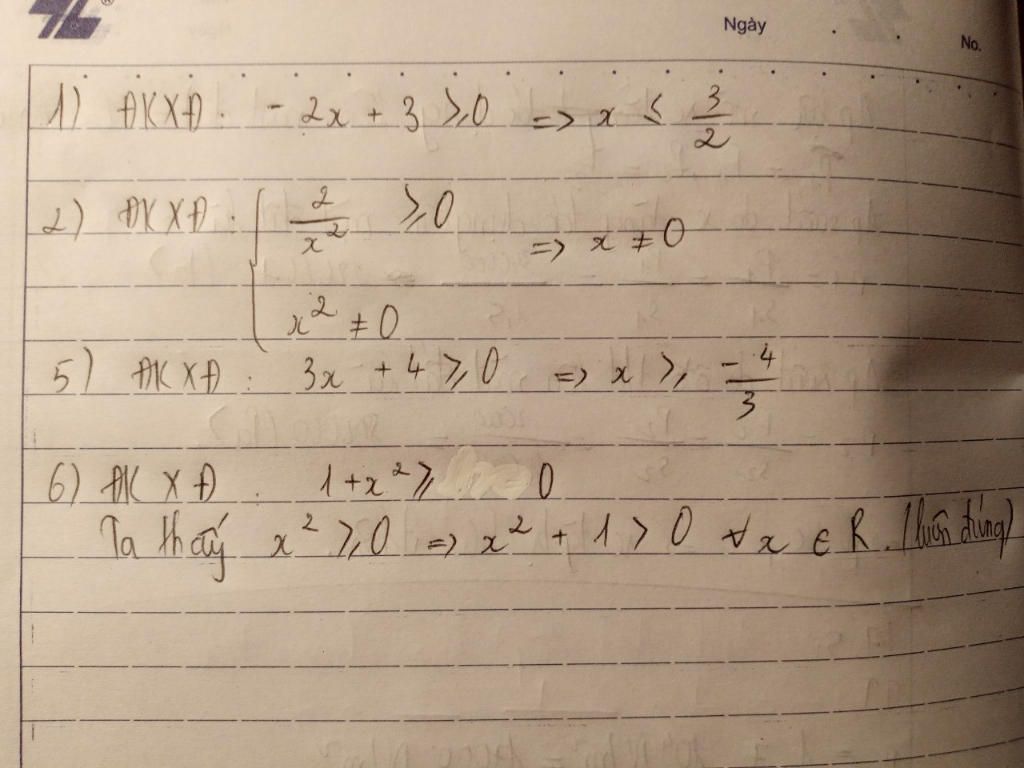 Ngày
No.
1) ĐKXĐ. -2x + 3 ≥ 0 => x ≤ 3/2
2) ĐKXĐ. { 2/x² ≥ 0 => x ≠ 0
x² ≠ 0
5) ĐKXĐ: 3x + 4 ≥ 0 => x ≥ -4/3
6) ĐKXĐ. 1 + x² ≥ 0
Ta thấy x² ≥ 0 => x² + 1 > 0 ∀x ∈ R. (luôn đúng)